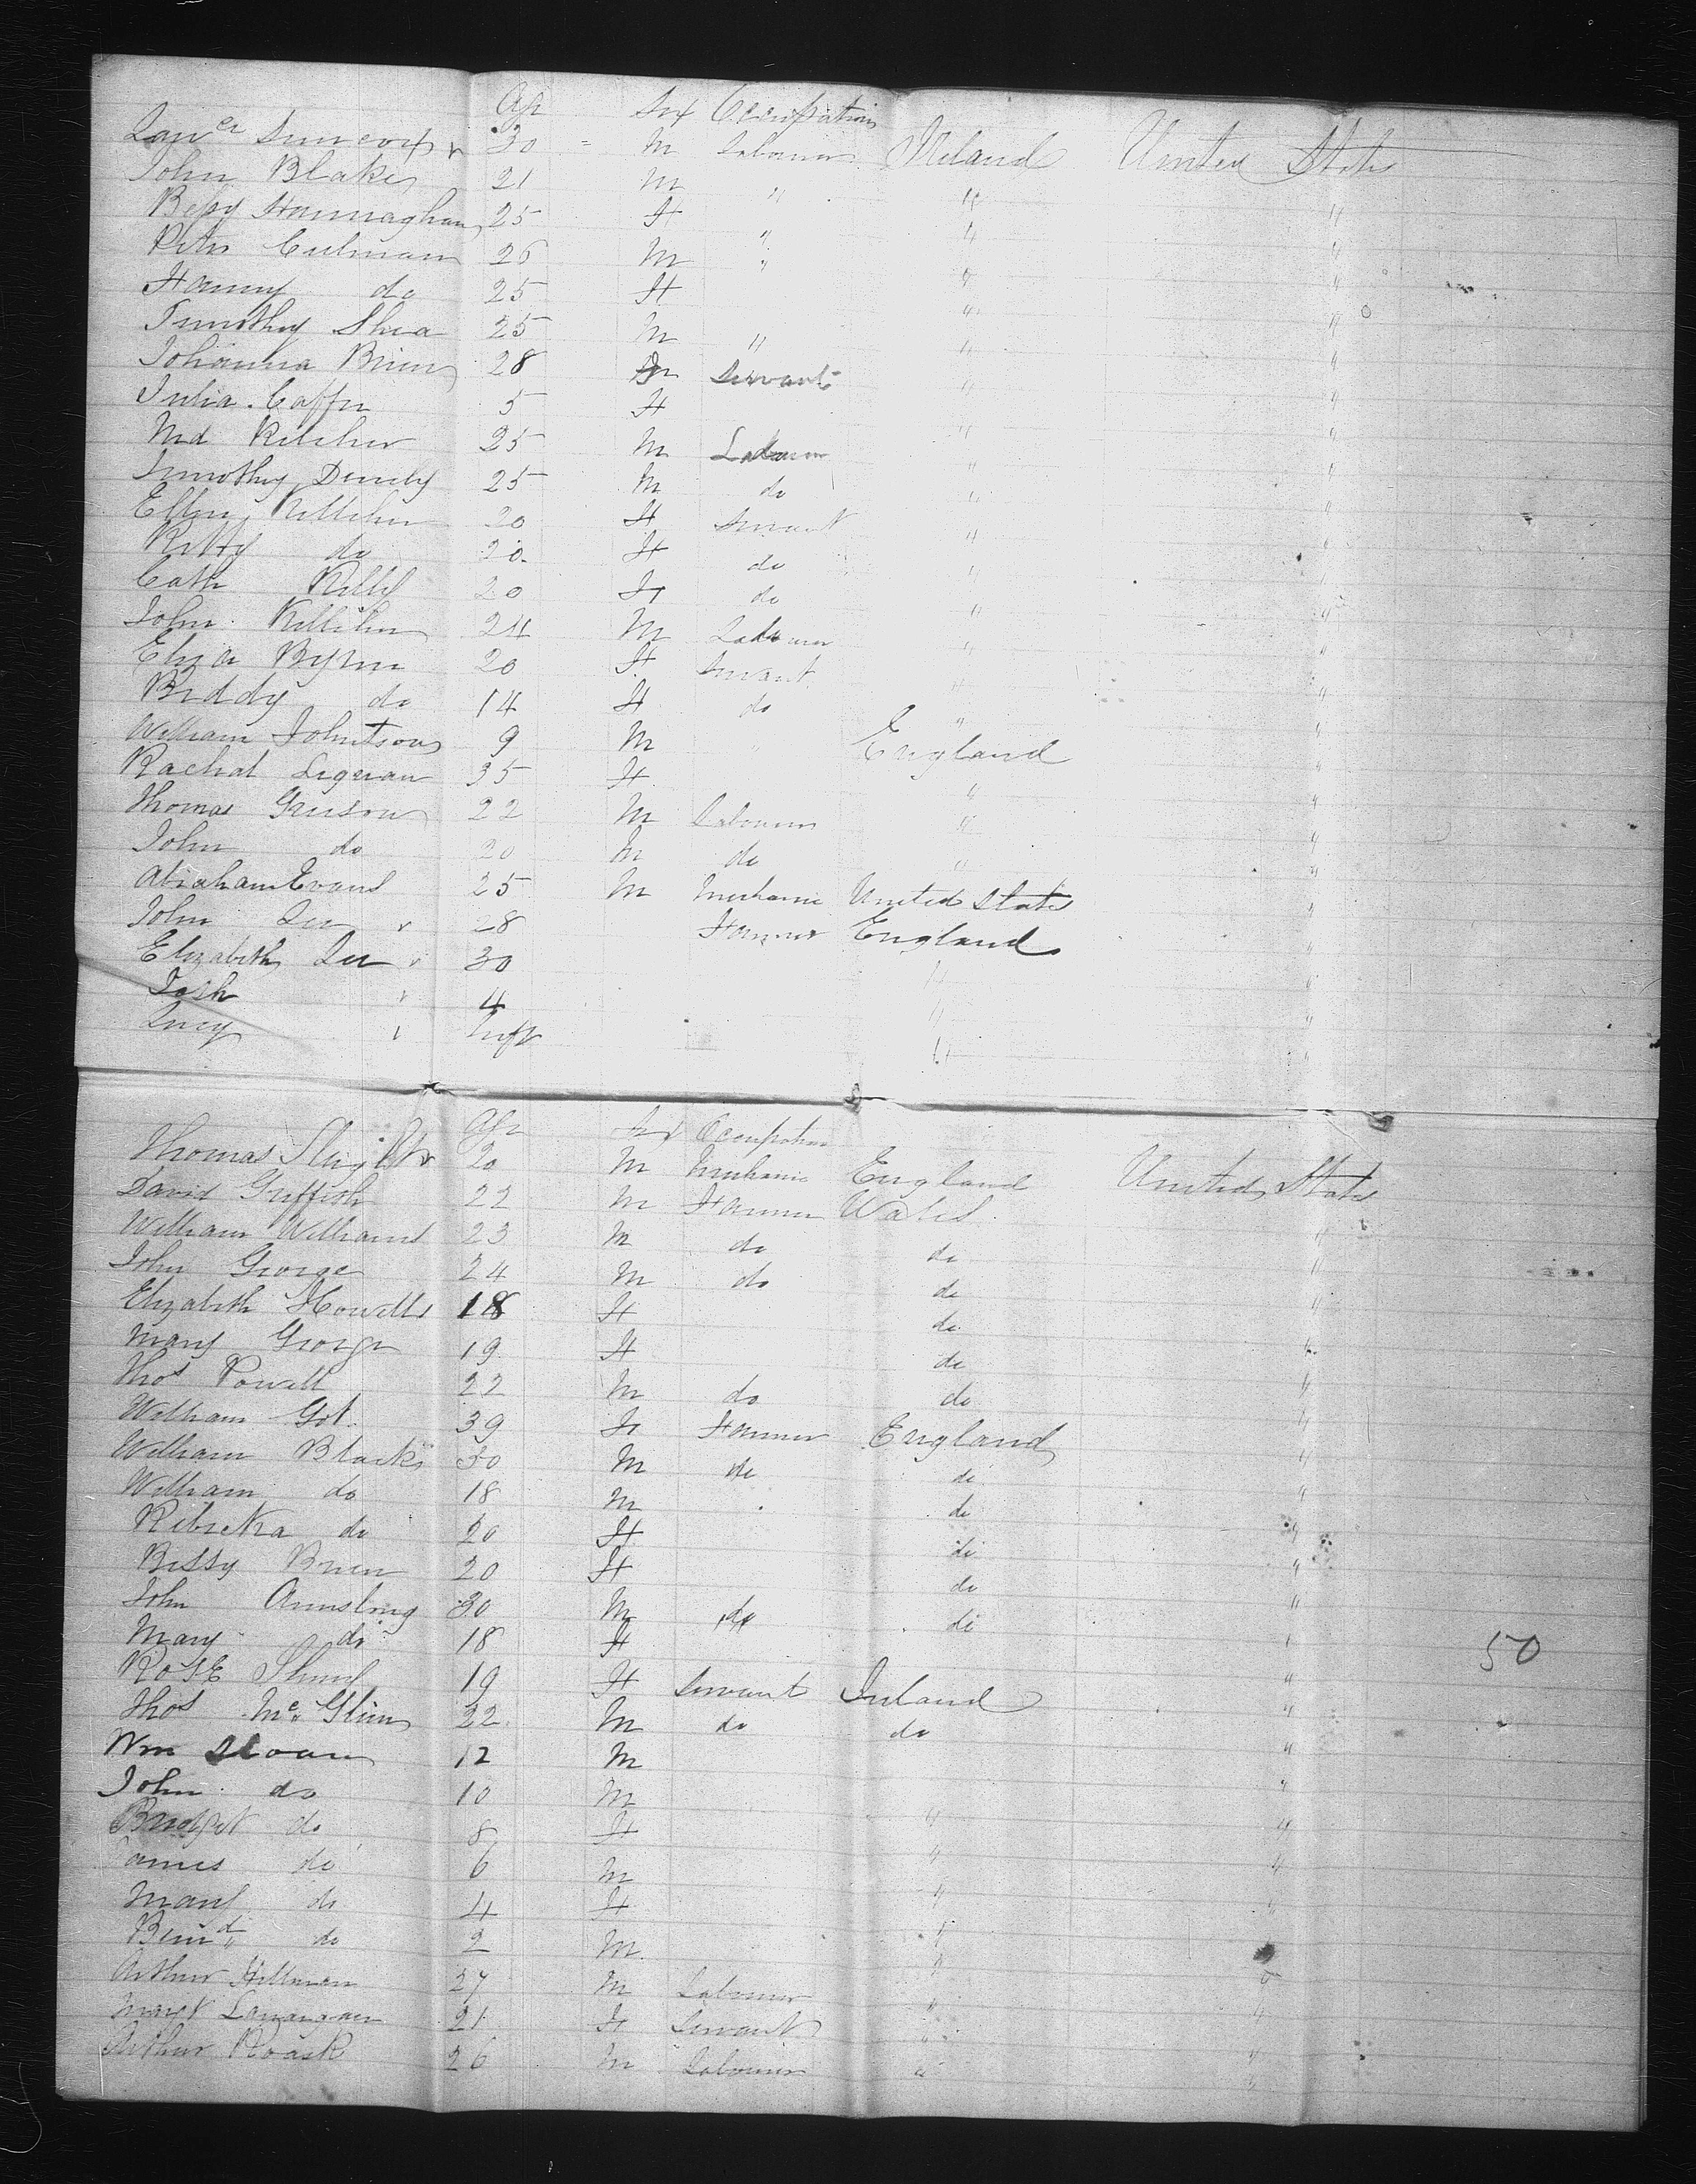 Age Sex Occupation
Lawce Simcox 30 M Labourer Ireland United States
John Blake 21 M " " "
Bessy Hannaghan 25 F " " "
Peter Culman 26 M " " "
Hanny do 25 F " "
Timothy Shea 25 M " " "
Johanna Brien 28 Servant " "
Julia Caffer 5 F " "
Md Kelcher 25 M Labourer " "
Timothy 25 M do " "
Ellen Kelleher 20 F Servant " "
Kitty do 20 F do " "
Cath Kelly 20 F do " "
John Kelleher 24 M Labourer " "
Eliza Byrne 20 F Servant " "
Biddy do 14 F do " "
William Johntson 9 M " England "
Rachel 35 F " "
Thomas 22 M Labourer " "
John do 20 M do " "
Abraham Evans 25 M Mechanic United States "
John Lee 28 Farmer England "
Elizabeth Lee 30 " "
Josh 4 " "
Lucy Inft " "
Age Sex Occupation
Thomas Slight 20 M Mechanic England United States
David Griffith 22 M Farmer Wales
William Williams 23 M do do "
John George 24 M do do "
Elizabeth Howells 18 F do "
Mary George 19 F do "
Thos Powell 22 M do do "
William Got 39 F Farmer England "
William Black 30 M do do "
William do 18 M do "
Rebecka do 20 F do "
Bessy Brien 20 F do "
John Armstrong 30 M do do "
Mary do 18 F "
50
Rose 19 F Servant Ireland "
Thos Mc Glinn 22 M do do "
Wm Sloan 12 M "
John do 10 M "
Bridget do 8 F " "
James do 6 M " "
Mary do 4 F " "
Bernd do 2 M " "
Arthur Hillman 27 M Labourer " "
Margt Lanangan 21 F Servant " "
Arthur Roark 26 M Labourer " "